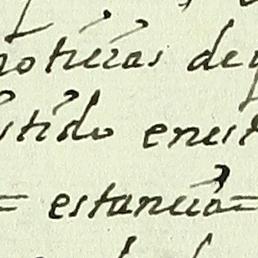 noticias de
stido enest
= estancia=